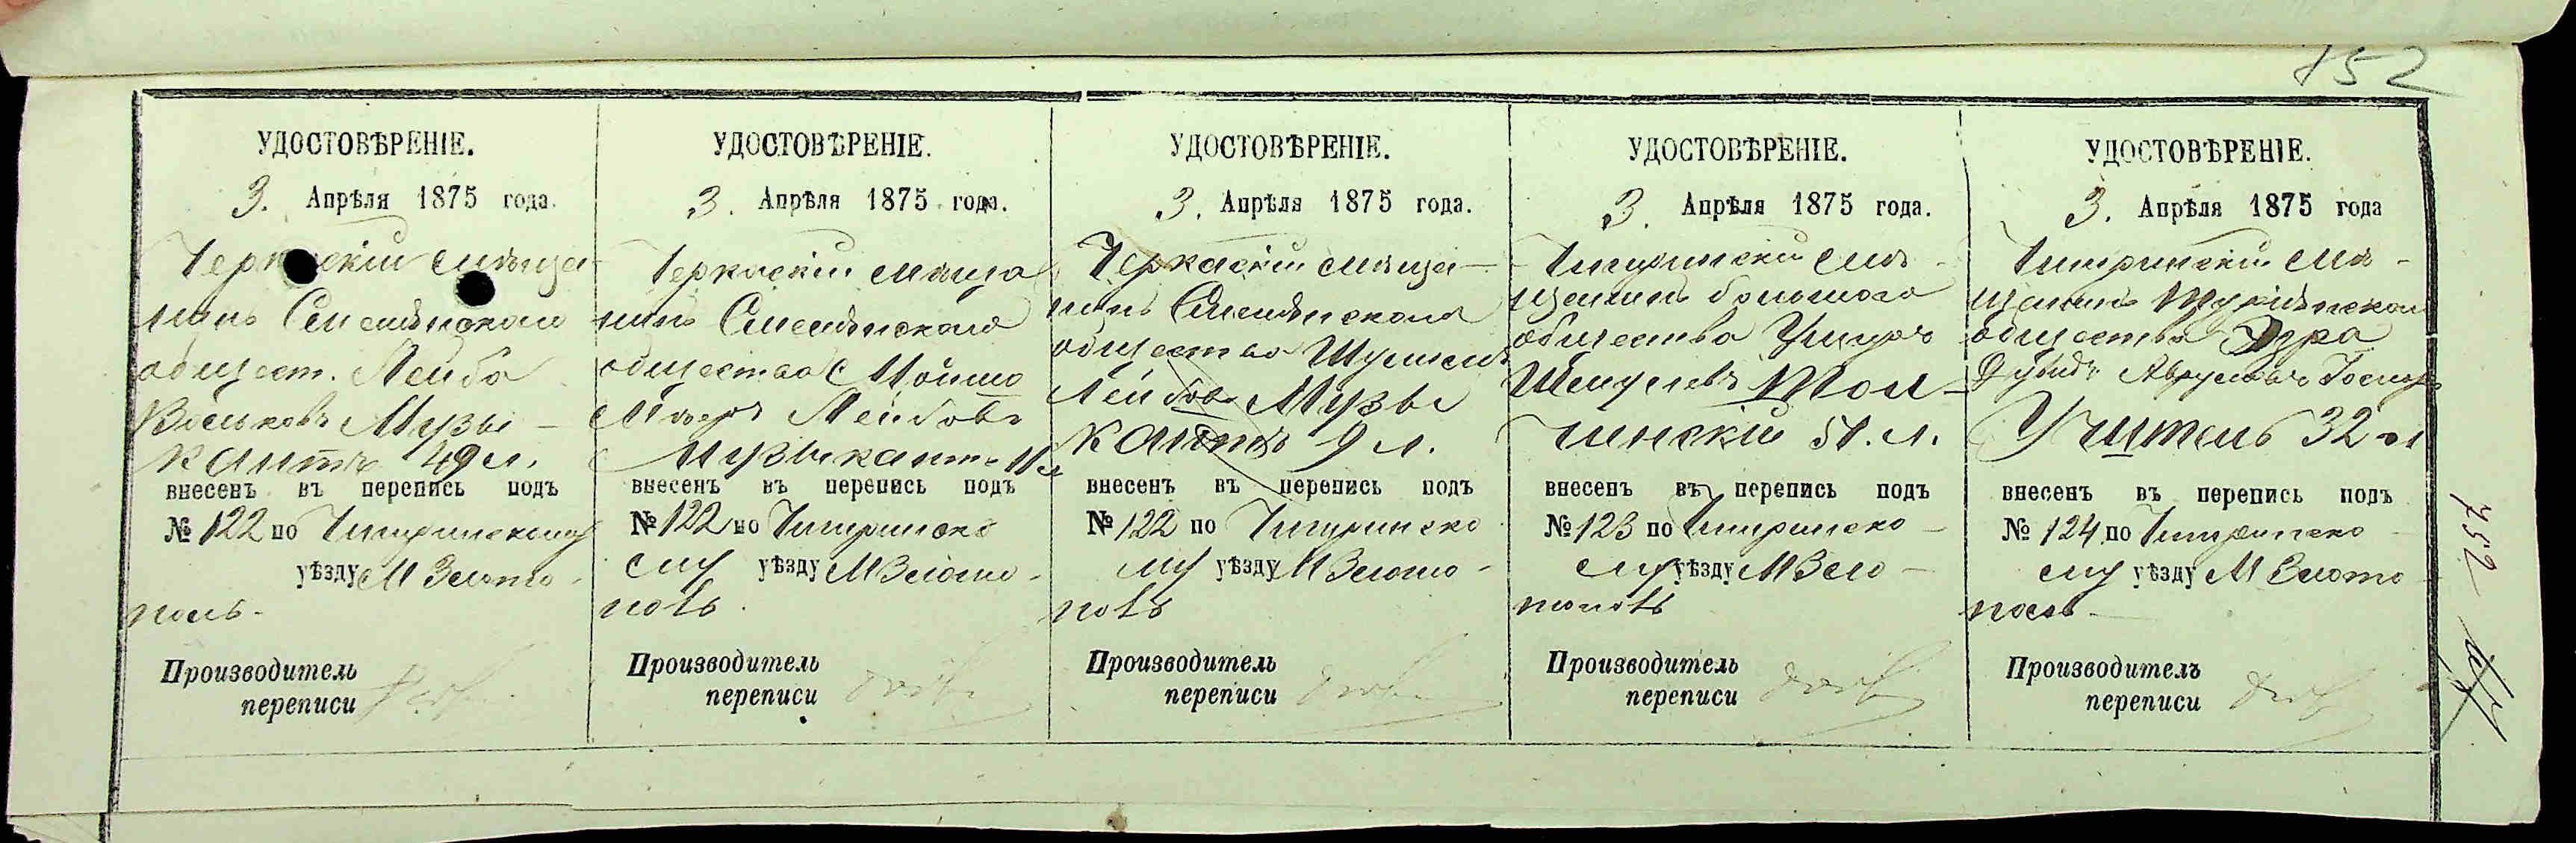 152
УДОСТОВѢРЕНІЕ.
3. Апрѣля 1875 года.
Черкаскій мѣща-
нинъ Смелянскаго
общест. Лейба
Васьковъ Музы-
кантъ 49 л.
внесенъ въ перепись подъ
№ 122 по Чигиринскому
уѣзду М Злато-
поль-
Производитель
переписи
УДОСТОВѢРЕНІЕ.
3. Апрѣля 1875 года.
Черкаскій мѣща
нинъ Смелянскаго
общества Мошко
Мееръ Лейбовъ
Музыкантъ 11 л
внесенъ въ перепись подъ
№ 122 по Чигиринско
му уѣзду М Злато-
поль
Производитель
переписи
УДОСТОВѢРЕНІЕ.
3. Апрѣля 1875 года.
Черкаскій мѣща-
нинъ Смелянскаго
общества
Лейбовъ Музы
кантъ 9 л.
внесенъ въ перепись подъ
№ 122 по Чигиринско
му уѣзду М Злато-
поль
Производитель
переписи
УДОСТОВѢРЕНІЕ.
3 Апрѣля 1875 года.
Чигиринскій мѣ-
щанинъ
общества
Тол-
чинскій 51. л.
внесенъ въ перепись подъ
№ 123 по Чигиринско-
му уѣзду М Зло-
тополь
Производитель
переписи
УДОСТОВѢРЕНІЕ.
3. Апрѣля 1875 года
Чигиринскій мѣ-
щанинъ
общества
Дувидъ
Учитель 32 л
внесенъ въ перепись подъ
№ 124 по Чигиринско
му уѣзду М Злато
поль-
Производитель
переписи
752